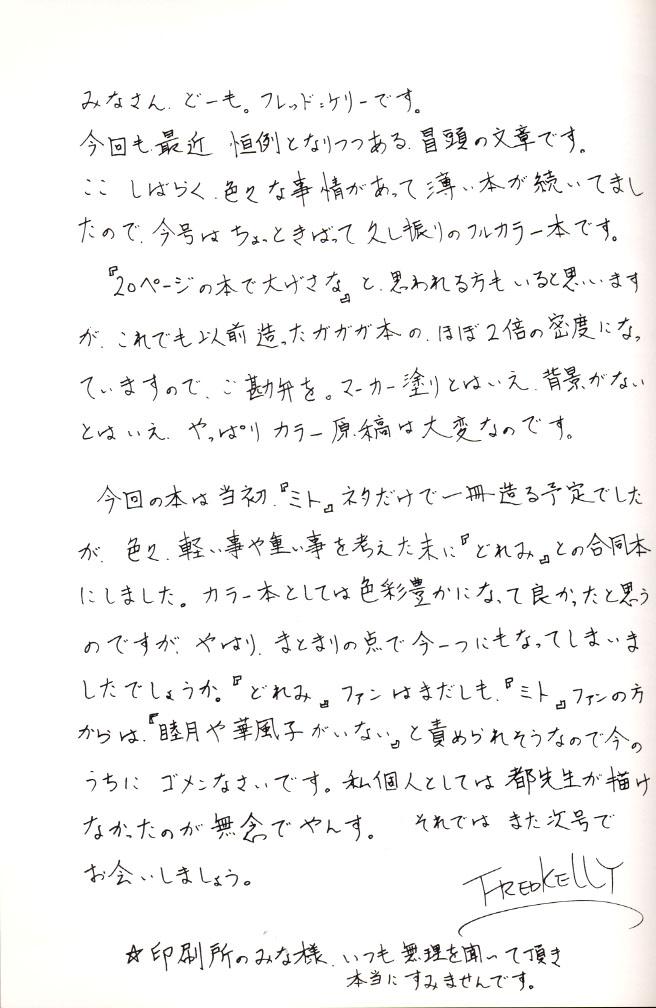 みなさん、どーも。フレッド=ケリーです。
今回も、最近 恒例となりつつある、冒頭の文章です。
ここ しばらく、色々な事情があって薄い本が続いてまし
たので、今号はちょっときばって久し振りのフルカラー本です。
『20ページの本で大げさな』と、思われる方もいると思います
が、これでも以前造ったガガガ本の、ほぼ2倍の密度になっ
ていますので、ご勘弁を。マーカー塗りとはいえ、背景がない
とはいえ、やっぱりカラー原稿は大変なのです。
今回の本は当初、『ミト』ネタだけで一冊造る予定でした
が、色々、軽い事や重い事を考えた末に『どれみ』との合同本
にしました。カラー本としては色彩豊かになって良かったと思う
のですが、やはり、まとまりの点で今一つにもなってしまいま
したでしょうか。『どれみ』ファンはまだしも、『ミト』ファンの方
からは、『睦月や華風子がいない』と責められそうなので今の
うちに ゴメンなさいです。私個人としては都先生が描け
なかったのが無念でやんす。 それでは また次号で
お会いしましょう。
FREDKELLY
☆印刷所のみな様、いつも無理を聞いて頂き
本当にすみませんです。